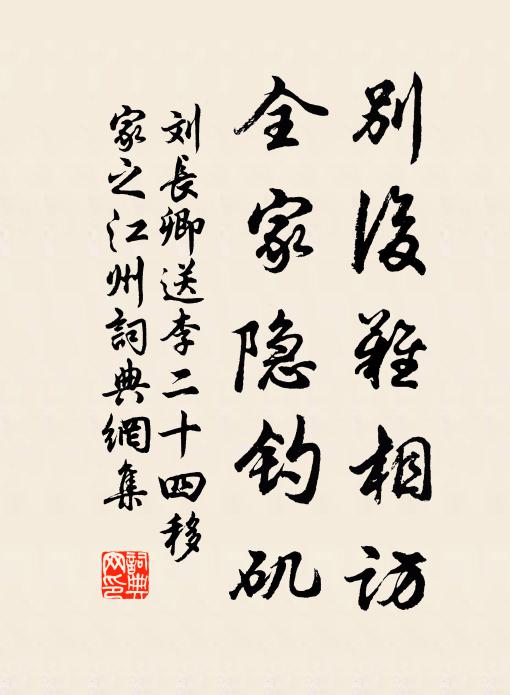 别後難相訪
全家隐钓矶
刘長卿送李二十四移
家之江州詞典網集
詞典网印